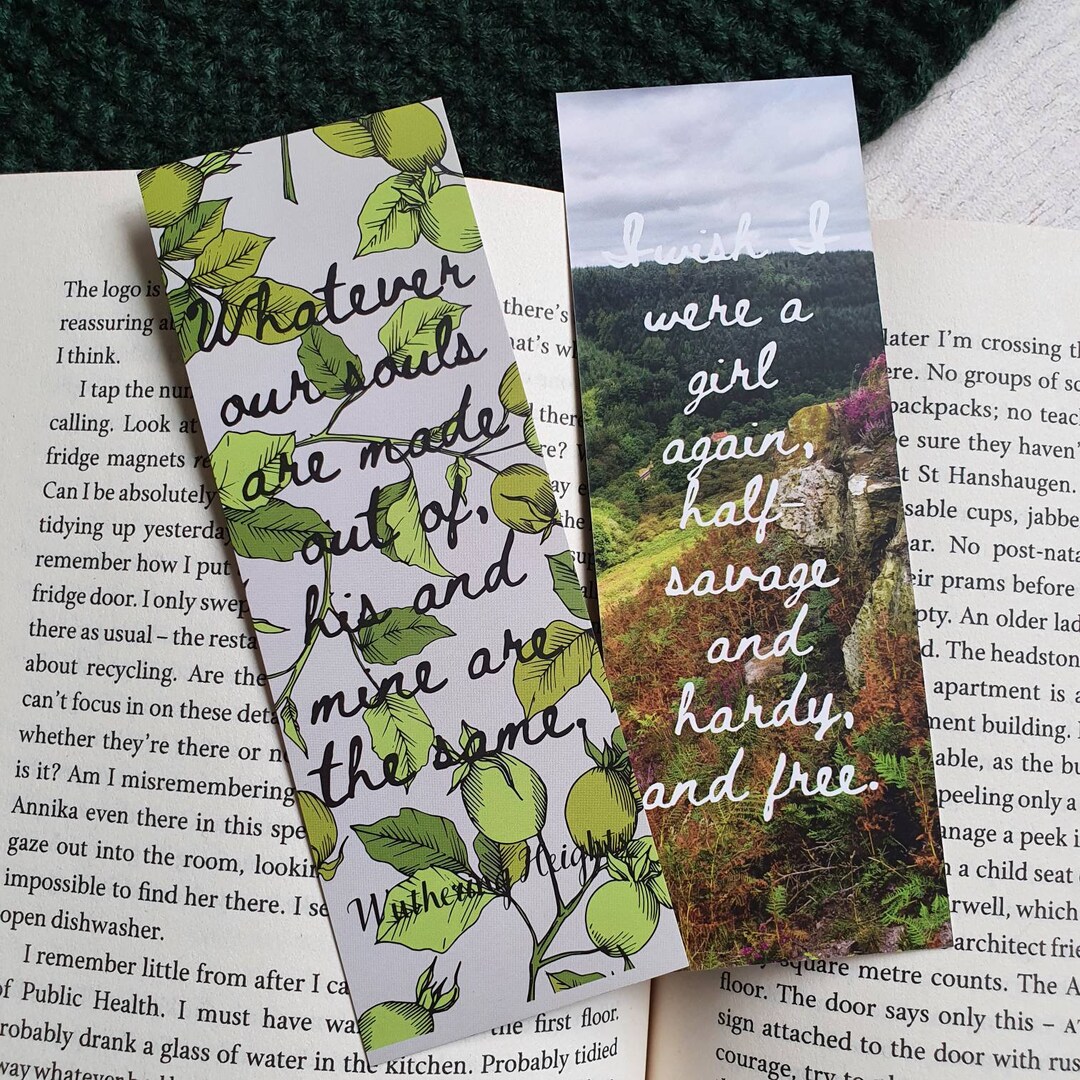 Whatever
our souls
are made
out of,
his and
mine are
the same.
Wuthering Heights
I wish I
were a
girl
again,
half-
savage
and
hardy,
and free.
The logo is
reassuring
I think.
I tap the
calling. Look at
fridge magnets
Can I be absolutely
tidying up
remember how I put
fridge door. I only
there as usual – the
about recycling. Are the
can't focus on these
whether they're there or
is it? Am I misremembering
Annika even there in this
gaze out into the room,
impossible to find her there. I
open dishwasher.
I remember little from after I
of Public Health. I must have
the first floor.
probably drank a glass of water in the kitchen. Probably tidied
there's
there
later I'm crossing
ere. No groups of
backpacks; no
be sure they haven't
t St Hanshaugen.
sable cups,
ar. No
eir prams before
pty. An older
d. The
apartment is
ment building.
able, as the
peeling only a
anage a peek
n a child seat
rwell, which
architect
square metre counts. The
floor. The door says only this –
sign attached to the door with
courage, try to